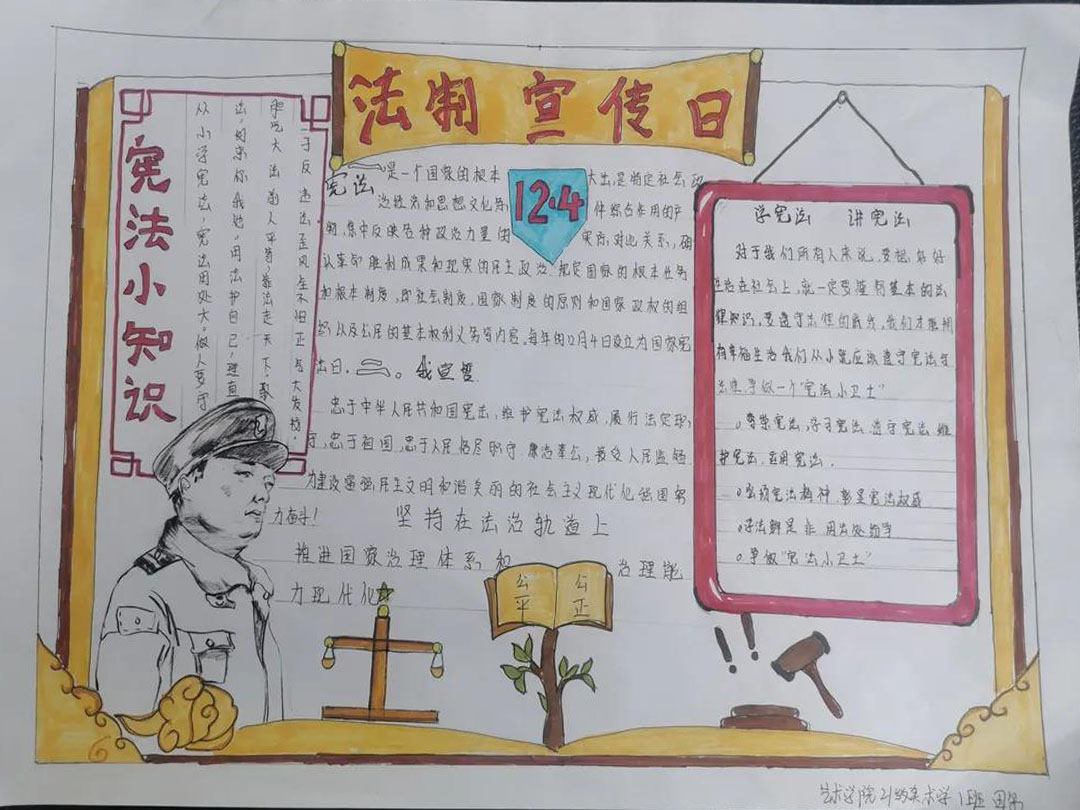 法制宣传日
12.4
宪法小知识
从小学宪法,宪法用处大。做人要守
法,
学法大法
一于反违法歪风
一
宪法是一个国家的根本大法,是特定社会政
治经济和思想文化条件综合作用的产
物,集中反映各种政治力量的实际对比关系,确
认革命胜利成果和现实的民主政治,规定国家的根本任务
和根本制度,即社会制度、国家制度的原则和国家政权的组
织以及公民的基本权利义务等内容。每年的12月4日设立为国家宪
法日。二。我宣誓
忠于中华人民共和国宪法,维护宪法权威,履行法定职
守,忠于祖国,忠于人民恪尽职守,廉洁奉公,接受人民监督
为建设富强民主文明和谐美丽的社会主义现代化强国努
力奋斗!
坚持在法治轨道上
推进国家治理体系和治理能
力现代化
公平
公正
学宪法 讲宪法
对于我们所有人来说,要想好好
生活在社会上,就一定要懂得基本的法
律知识,要遵守法律的
有幸福生活我们从小就应该遵守宪法守
法律,争做一个"宪法小卫士"
尊崇宪法,学习宪法 遵守宪法 维
护宪法,运用宪法。
宪法精神,彰显宪法权威
学法辨是非 用法处
争做"宪法小卫士"
艺术学院21级美术学1班